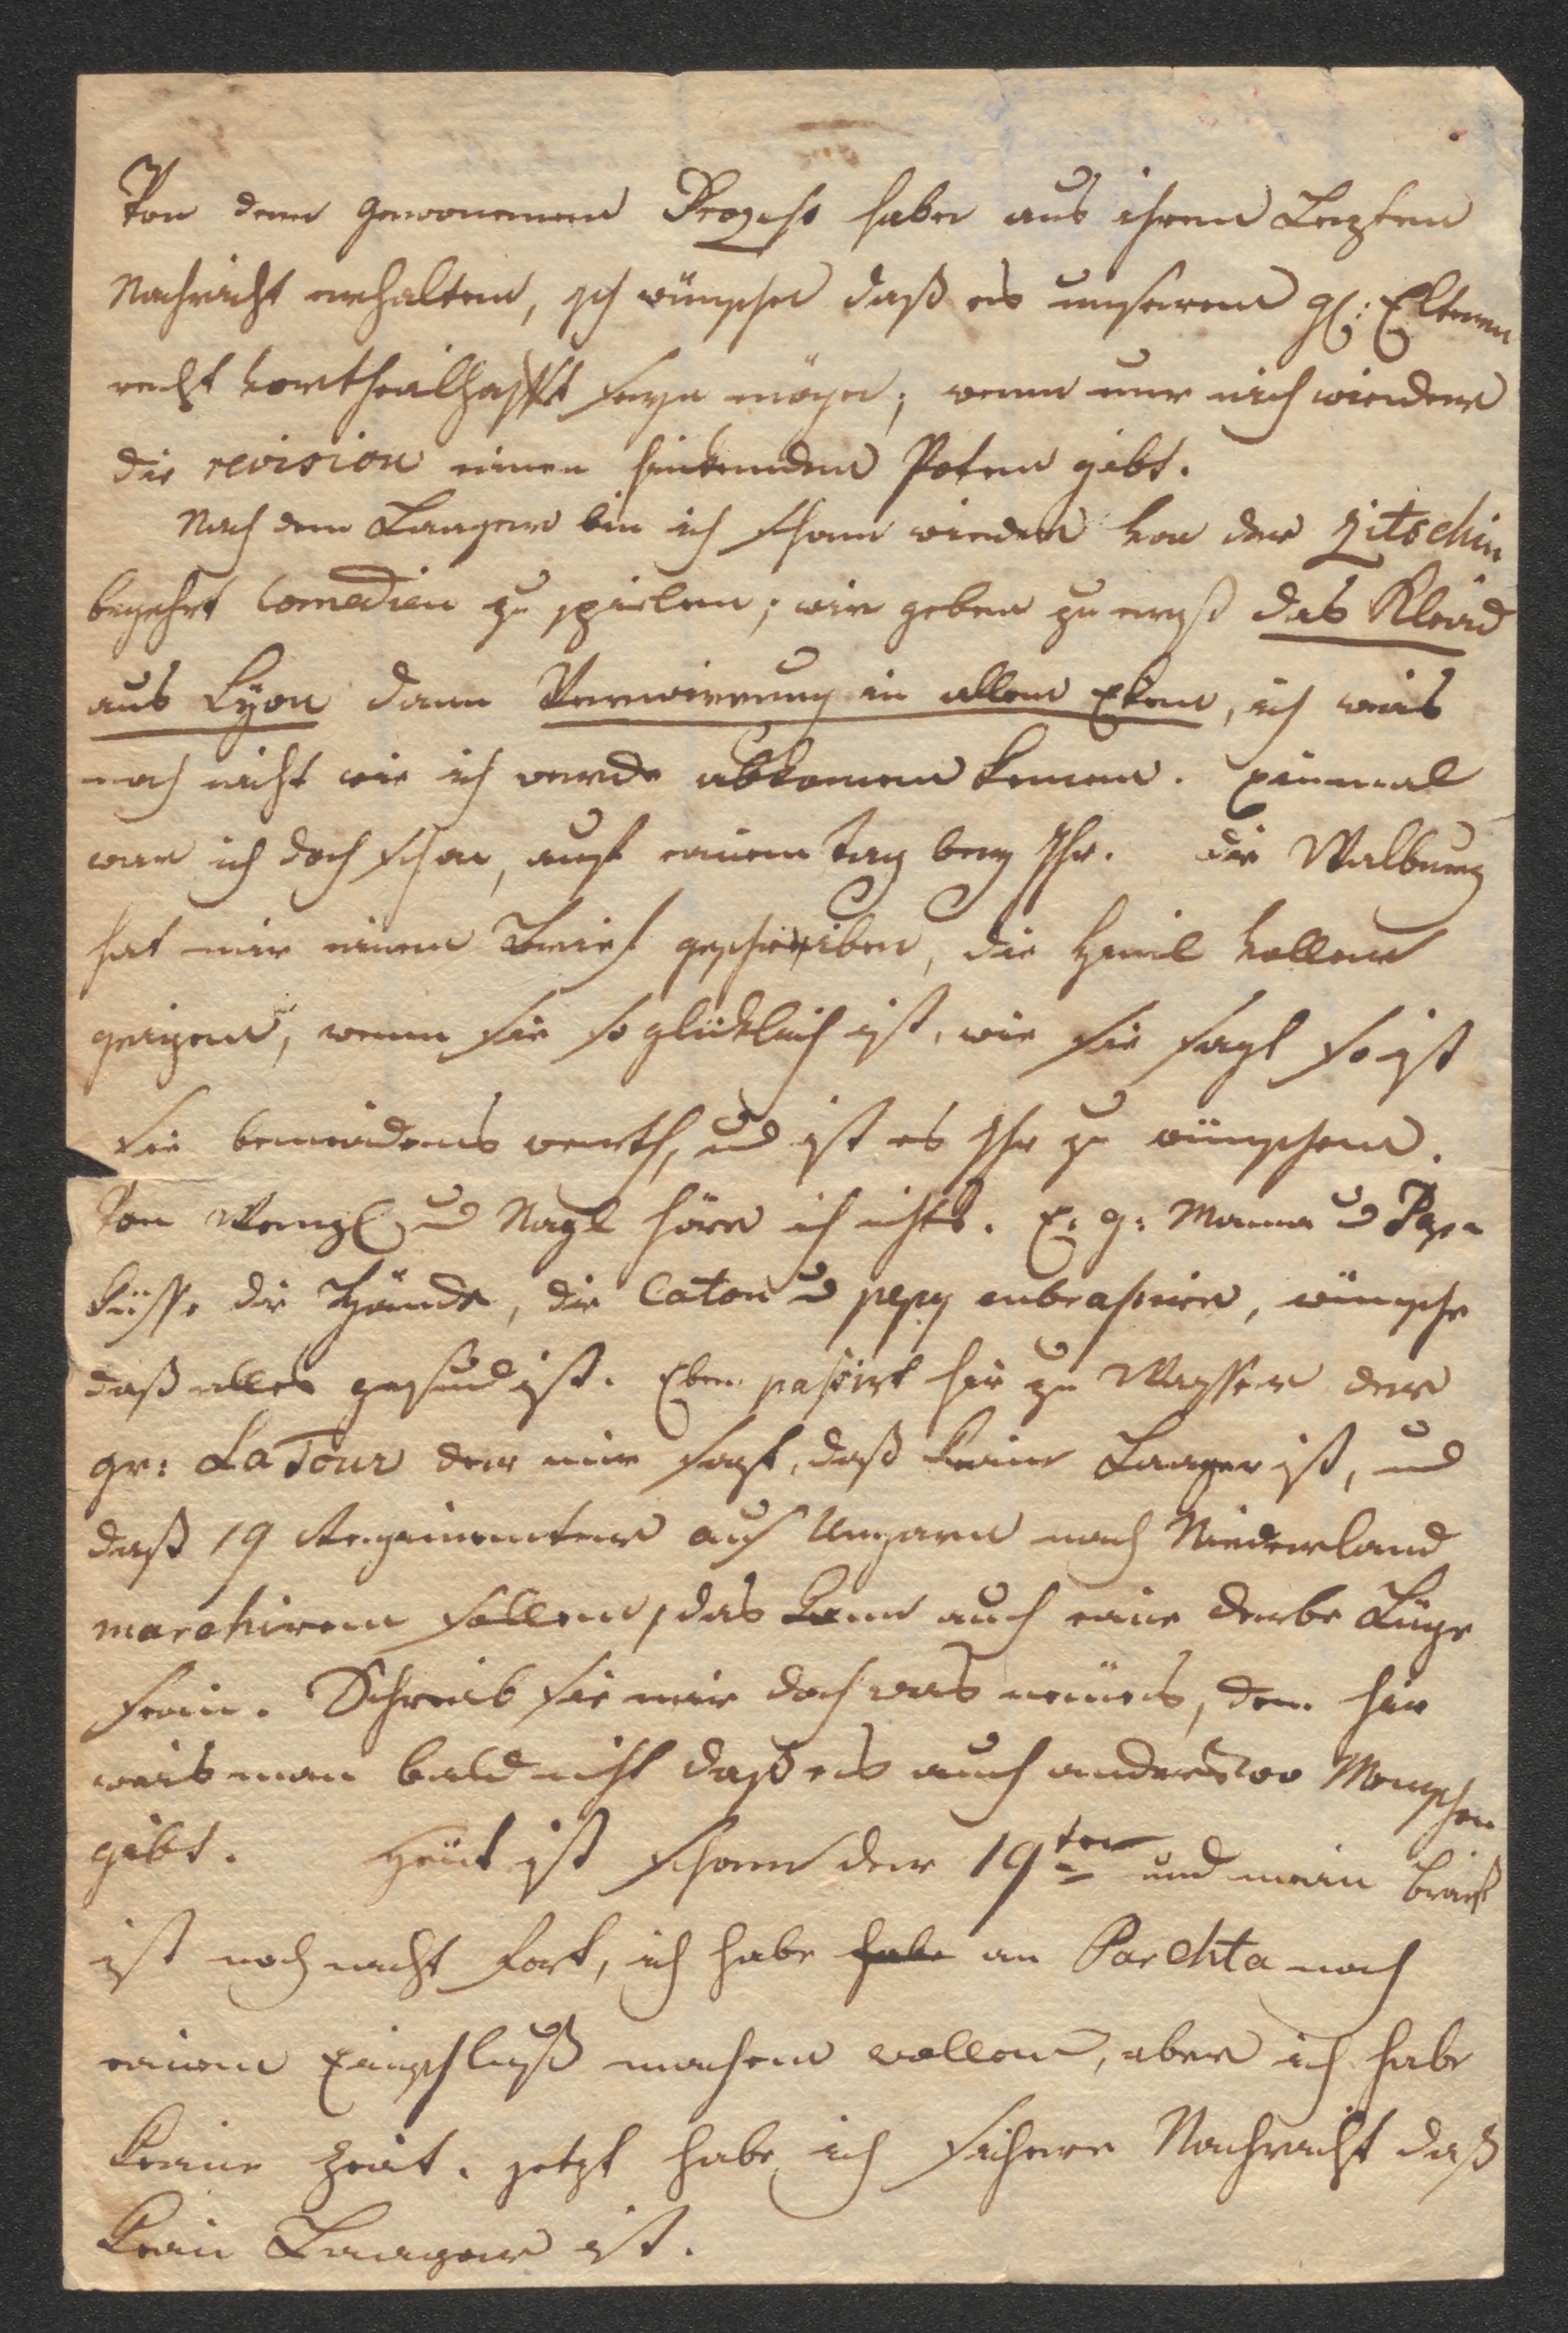 Von dem gewonnenen Prozess habe aus ihren Lezten
Nachricht erhalten, ich wünsche daß es unseren gl: Eltern
recht vortheilhafft seyn möge; wenn nur nich wieder
die revision einen hinkenden Poten gibt.
Nach dem Laager bin ich schon wieder von der Zitschin
begehrt Comedien zu spielen; wir geben zu erst das Kleid
aus Lyon dann Verwirrung in allen Eken, ich weis
noch nicht wie ich werde abkomen kennen. Einmal
war ich doch schon, auf einem Tag bey Ihr. die Walburg
hat mir einen Brief geschrieben, die Himl voller
geigen, wenn sie so glücklich ist, wie sie sagt so ist
sie beneidens werth, und ist es Ihr zu wünschen.
Von Wenzl und Nagl höre ich nichts. E: g: Mama u Papa
küsse die Hände, die Caton u pepy enbrasire, wünsche
daß alles gesund ist. Eben passirt hir zu Wasser der
gr: LaTour der mir sagt, daß kein Laager ist, und
daß 19 Regimenter aus Ungarn nach Niederland
marchiren sollen, das kann auch eine derbe Lüge
sein. Schreib sie mir doch was neues, den hir
weis man bald nicht daß es auch anderswo Menschen
gibt. Heut ist schon der 19ten und mein brief
ist noch nicht fort, ich habe habe an Pachta noch
einen Einschluß machen wollen, aber ich habe
keine Zeit. jetzt habe ich sichere Nachricht daß
kein Laager ist.